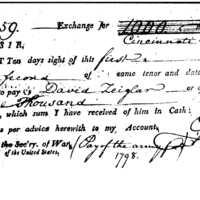 59. Exchange for 1000
Cincinnati
SIR,
T Ten days sight of this first
Second of same tenor and date
to pay David Zeiglar or
Thousand
, which sum I have received of him in Cash
s per advice herewith to my Account,
the Sec'ry. of War, Pay of the army
of the United States, 1798.